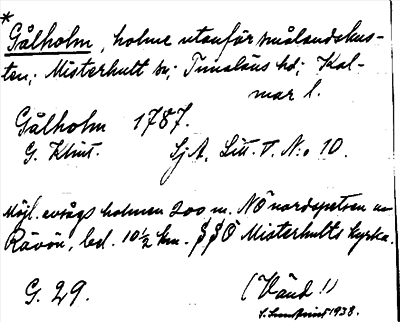 *
Gålholm, holme utanför smålandskus-
ten; Misterhult sn; Tunaläns hd; Kal-
mar l.
Gålholm 1787.
G. Klint. SjA, Litt. T. N:o 10.
Möjl. avsågs holmen 200 m. NÖ nordspetsen av
Rävön, bel. 10½ km. SSÖ Misterhults kyrka.
G. 29. (Vänd!)
1938.